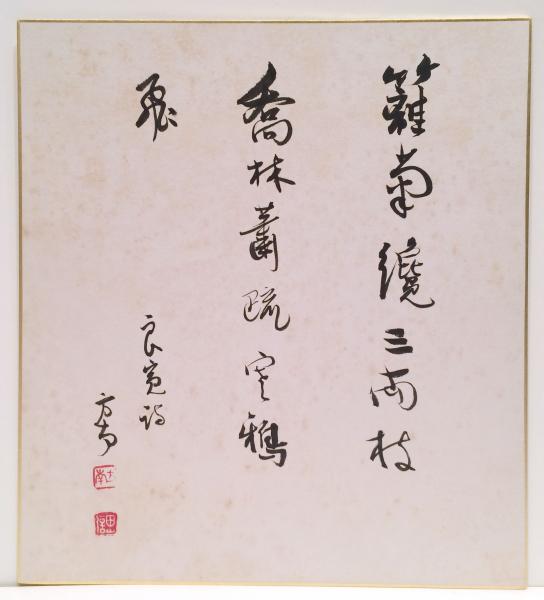 籬菊纔三両枝
喬林蕭疏寒鴉
飛
良寛詩
方南